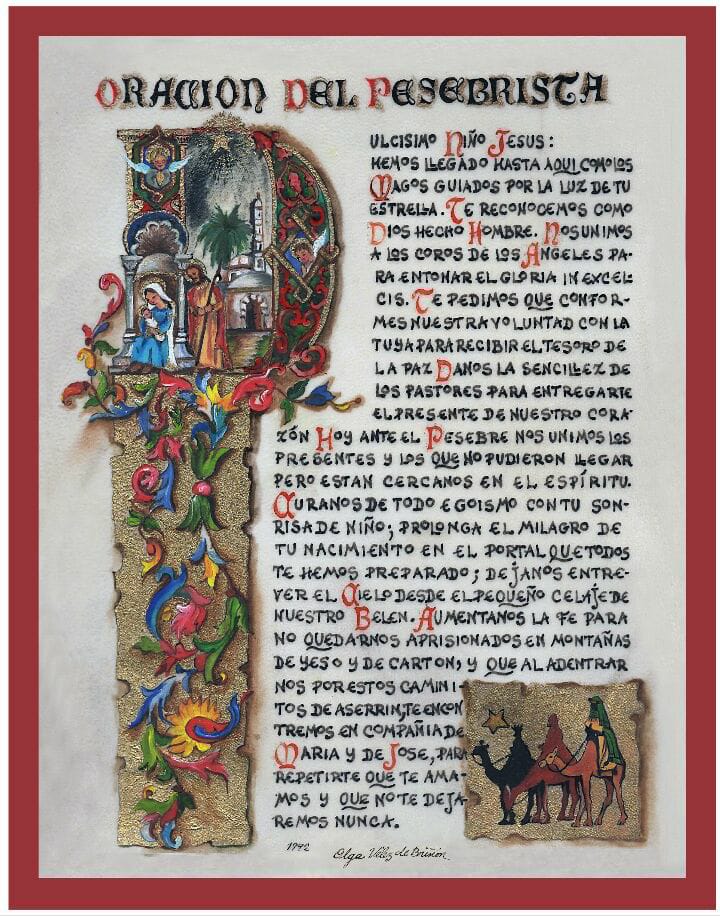 ORACION DEL PESEBRISTA
DULCISIMO NIÑO JESUS:
HEMOS LLEGADO HASTA AQUI COMO LOS
MAGOS GUIADOS POR LA LUZ DE TU
ESTRELLA. TE RECONOCEMOS COMO
DIOS HECHO HOMBRE. NOS UNIMOS
A LOS COROS DE LOS ANGELES PA-
RA ENTONAR EL GLORIA IN EXCEL-
CIS. TE PEDIMOS QUE CONFOR-
MES NUESTRA VOLUNTAD CON LA
TUYA PARA RECIBIR EL TESORO DE
LA PAZ DANOS LA SENCILLEZ DE
LOS PASTORES PARA ENTREGARTE
EL PRESENTE DE NUESTRO CORA-
ZÓN HOY ANTE EL PESEBRE NOS UNIMOS LOS
PRESENTES Y LOS QUE NO PUDIERON LLEGAR
PERO ESTAN CERCANOS EN EL ESPÍRITU.
CURANOS DE TODO EGOISMO CON TU SON-
RISA DE NIÑO; PROLONGA EL MILAGRO DE
TU NACIMIENTO EN EL PORTAL QUE TODOS
TE HEMOS PREPARADO; DEJANOS ENTRE-
VER EL CIELO DESDE EL PEQUEÑO CELAJE DE
NUESTRO BELEN. AUMENTANOS LA FE PARA
NO QUEDARNOS APRISIONADOS EN MONTAÑAS
DE YESO Y DE CARTON; Y QUE AL ADENTRAR
NOS POR ESTOS CAMINI-
TOS DE ASERRIN, TE ENCON
TREMOS EN COMPAÑIA DE
MARIA Y DE JOSE, PARA
REPETIRTE QUE TE AMA-
MOS Y QUE NO TE DEJA-
REMOS NUNCA.
1992 Olga Vélez de